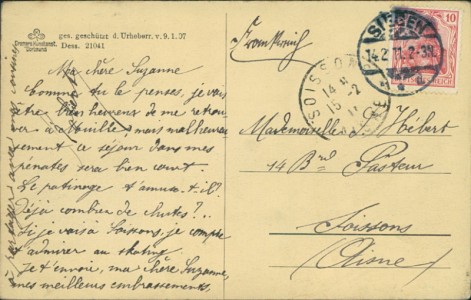 ges. geschützt d. Urheberr. v. 9.1.07
Dess. 21041
Cramers Kunstanst.
Dortmund
Ma chère Suzanne
Comme tu le penses, je vais
être bien heureux de me retrou
ver à mais malheureu
sement ce séjour dans mes
pénates sera bien court.
Le patinage t'amuse-t-il?
Déjà combien de chutes?..
Si je vais à Soissons, je compte
t'admirer au skating
Je t'envoie, ma chère Suzanne,
mes meilleurs embrassements
à partager avec
Frankreich
SIEGEN
14.2.11.2-3N.
10
REICH
SOISSONS
AISNE
14
15-2
11
Mademoiselle Hébert
14 Bd Pasteur
Soissons
(Aisne)